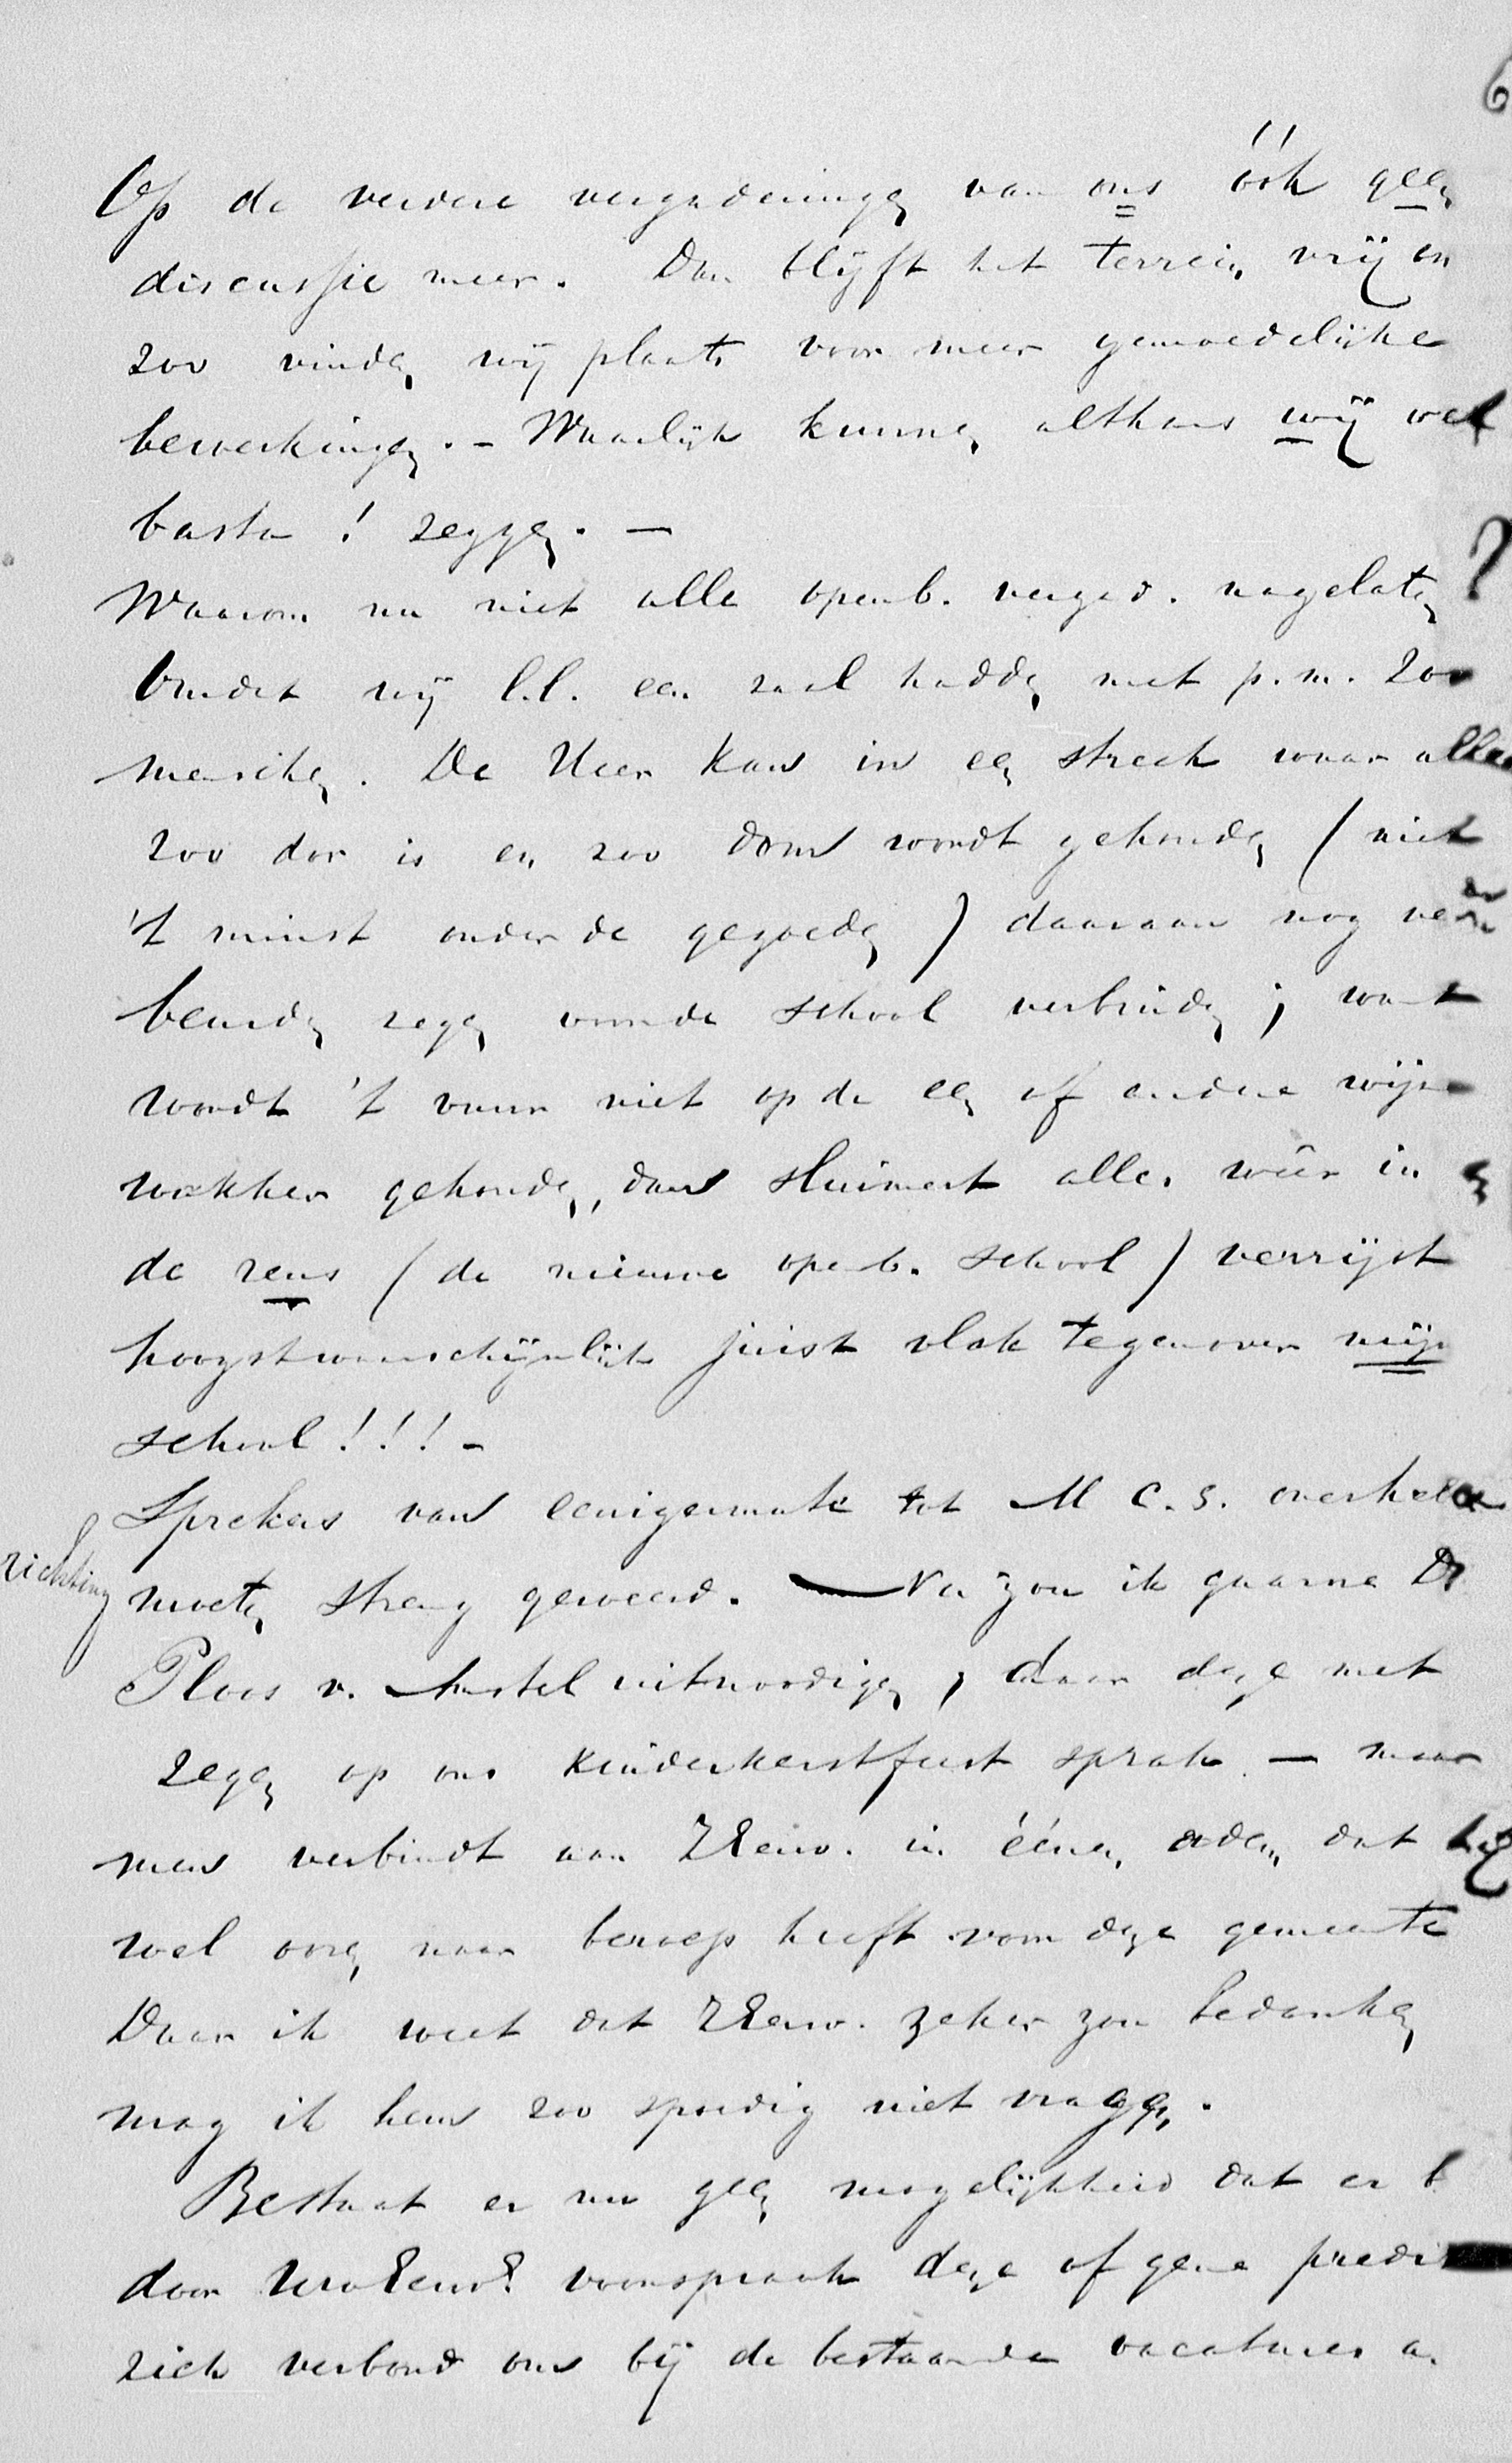 Op de verdere vergaderingen van ons óók geen
discussie meer. Dan blijft het terrein vrij en
zoo vinden wij plaats voor meer gemoedelijke
bewerkingen. – Waarlijk kunnen althans wij wel
basta! zeggen. –
Waarom nu niet alle openb. vergad. nagelaten ?
Omdat wij l.l. een zaal hadden met p.m. 200
menschen. De Heer kan in een streek waar alles
zoo dor is en zoo dom wordt gehouden (niet
't minst onder de gegoeden) daaraan nog
zegen voor de school verbinden; want
wordt 't vuur niet op de een of andere wijze
wakker gehouden, dan sluimert alles wêer in
de reus (de nieuwe openb. school) verrijst
hoogstwaarschijnlijk juist vlak tegenover mijn
school!!! –
Sprekers van eenigermate tot M C. S. overhell
richting
moeten streng geweerd. — Nu zou ik gaarne Ds
Ploos v. Amstel uitnoodigen, daar deze met
zegen op ons kinderkerstfeest sprak – maar
men verbindt aan ZEerw. in éénen adem dat hij
wel ooren naar beroep heeft voor deze gemeente
Daar ik weet dat ZEerw. zeker zou bedanken
mag ik hem zoo spoedig niet vragen.
Bestaat er nu geen mogelijkheid dat er
door UwEerw. voorspraak deze of gene
zich verbond ons bij de bestaande vacatures